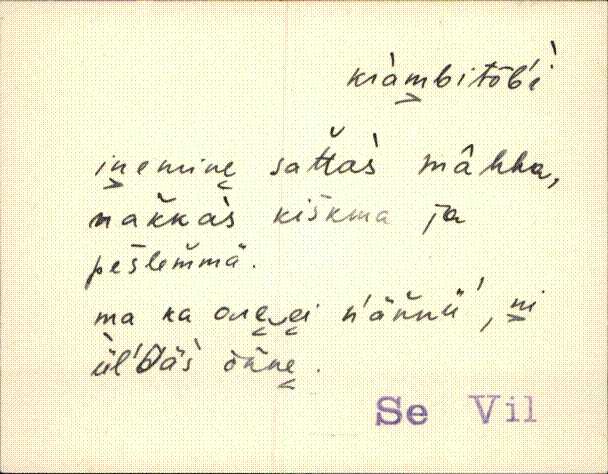 kràmbitōb'ì
inemine sat̆tas̀ mâhha,
nak̆kas̀ kiškma ja
pešlem̆mä.
ma ka ole‿ei n'än̆nü', ni
ül'däs̀ õn̆ne.
Se Vil